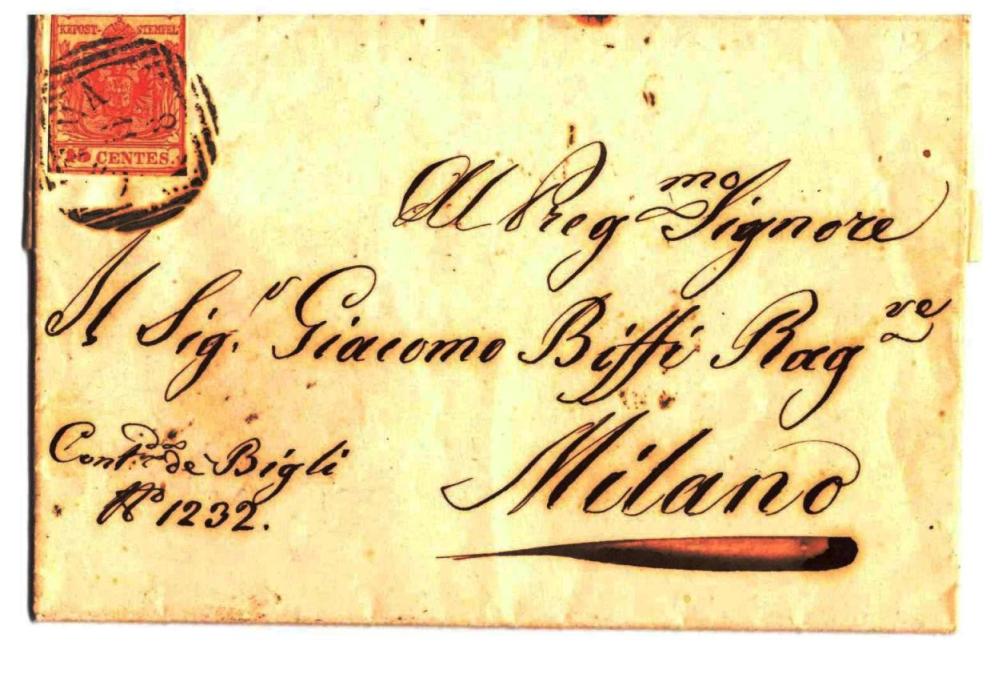 KKPOST-STEMPEL
15 CENTES.
Al Preg.mo Signore
Il Sig.r Giacomo Biffi Rag.re
Milano
Cont.da de Bigli
N.o 1232.